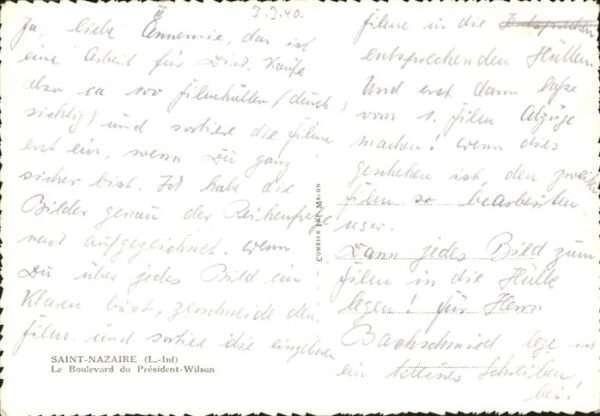 7.9.40.
Ja, liebe Ännemie, das ist
eine Arbeit für Dich. Kaufe
also ca 100 Filmhüllen (durch
sichtig) und sortiere die Filme
erst ein, wenn Du ganz
sicher bist. Ich habe die
Bilder genau der Reihenfolge
nach aufgezeichnet. Wenn
Du über jedes Bild im
Klaren bist, zerschneide den
Film und sortiere die einzelnen
SAINT-NAZAIRE (L.-Inf)
Le Boulevard du Président-Wilson
COMBIER IMP. MACON
Filme in die
entsprechenden Hüllen.
Und erst dann lasse
vom 1. Film Abzüge
machen! Wenn dies
geschehen ist den zweiten
Film so bearbeiten
usw.
Dann jedes Bild zum
Film in die Hülle
legen! Für Herrn
Bachschmid lege
ein Schreiben
bei!